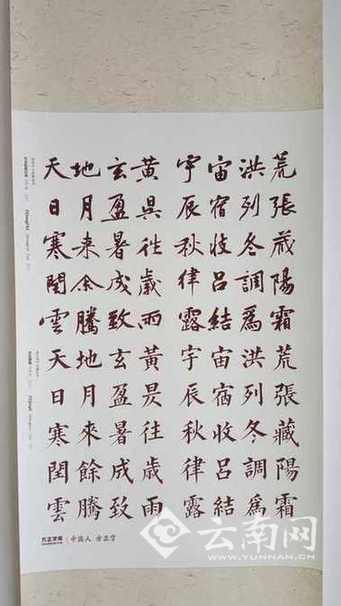 天地玄黃 宇宙洪荒
日月盈昃 辰宿列張
寒来暑往 秋收冬藏
閏余成歲 律呂調陽
雲騰致雨 露結爲霜
天地玄黃 宇宙洪荒
日月盈昃 辰宿列張
寒來暑往 秋收冬藏
閏餘成歲 律呂調陽
雲騰致雨 露結爲霜
方正字库 中国人 方正字
云南网
WWW.YUNNAN.CN